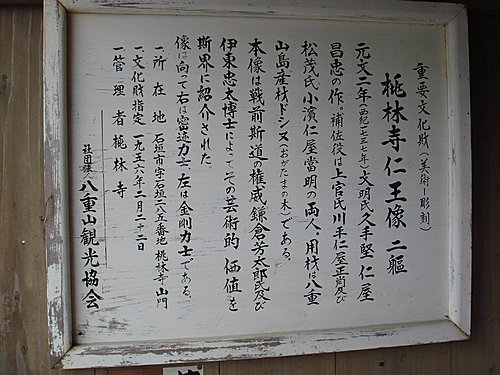 重要文化財(美術－彫刻)
桃林寺仁王像 二軀
元文二年(西紀一七三七年)文明氏久手堅仁屋
昌忠の作。補佐役は上官氏川平仁屋正納及び
松茂氏小濱仁屋當明の両人。用材は八重
山島産材ドシヌ(おがたまの木)である。
本像は戦前斯道の権威鎌倉芳太郎氏及び
伊東忠太博士によってその芸術的価値を
斯界に紹介された。
像は向って右は密迹力士、左は金剛力士である。
一、所在地 石垣市字石垣二八五番地 桃林寺山門
一、文化財指定 一九五六年二月二十二日
一、管理者 桃林寺
社団法人 八重山観光協会